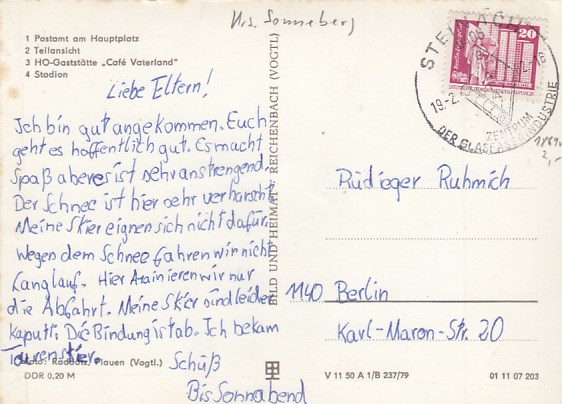 Krs. Sonneberg
1 Postamt am Hauptplatz
2 Teilansicht
3 HO-Gaststätte „Café Vaterland"
4 Stadion
Liebe Eltern!
Ich bin gut angekommen. Euch
geht es hoffentlich gut. Es macht
Spaß aber es ist sehr anstrengend.
Der Schnee ist hier sehr verharscht
Meine Skier eignen sich nicht dafür.
Wegen dem Schnee fahren wir nicht
Langlauf. Hier trainieren wir nur
die Abfahrt. Meine Skier sind leider
kaputt. Die Bindung ist ab. Ich bekam
Tourenskier.
Schüß
Bis Sonnabend
Plauen (Vogtl.)
DDR 0,20 M
BILD UND HEIMAT REICHENBACH (VOGTL)
20
19.-2.
ZENTRUM
DER GLAS INDUSTRIE
2,-
Rüdieger Ruhmich
1140 Berlin
Karl-Maron-Str. 20
V 11 50 A 1/B 237/79
01 11 07 203